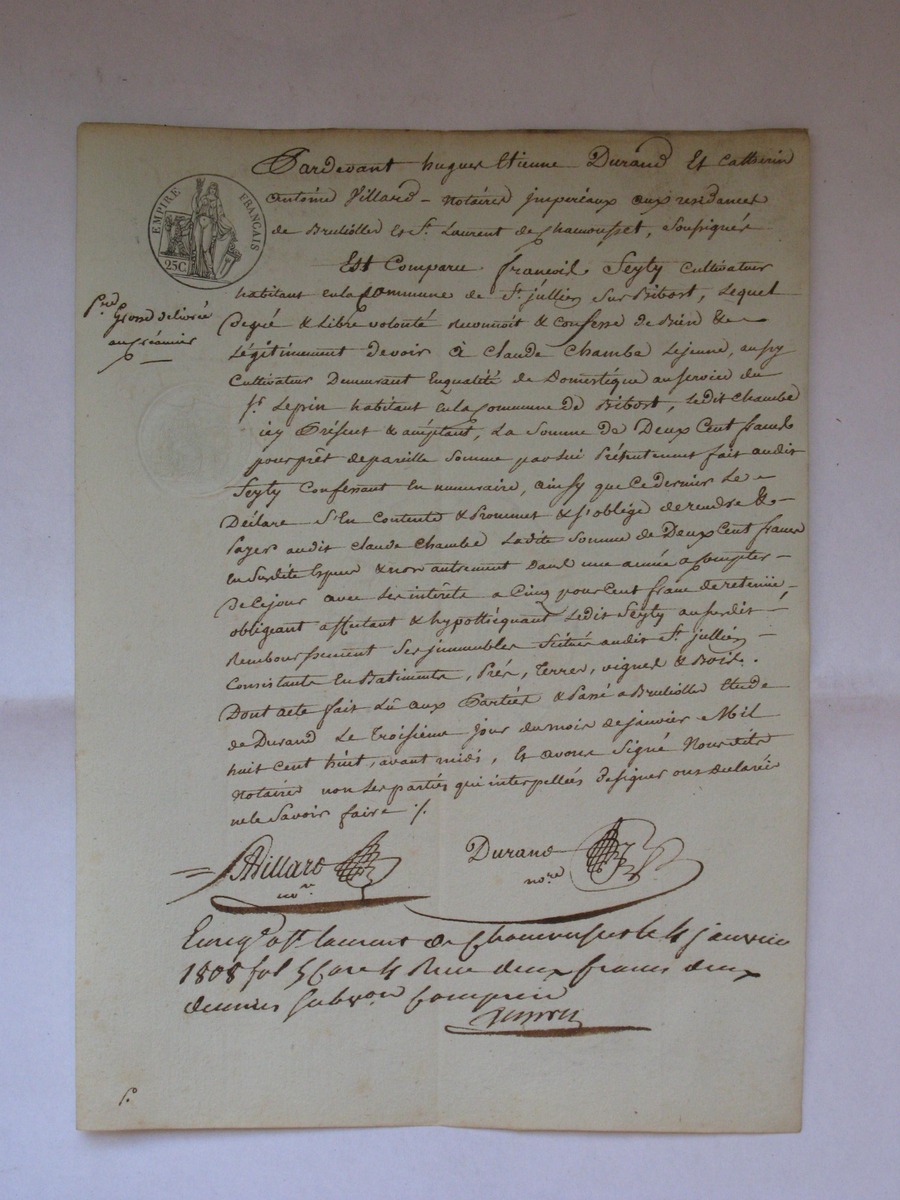 Pardevant hugues Etienne Durand Et Catherin
antoine Villard - Notaires jmperiaux aux residances
de Brulliolles et St. Laurent de Chamousset, Soussignés
EMPIRE FRANÇAIS
25C.
Est Comparu francois Seyty Cultivateur
habitant en la Commune de St. jullien Sur Bibost, Lequel
De gré & Libre volonté reconnoit & confesse de Bien &
Légitimement Devoir à Claude Chambe Lejeune, aussy
Cultivateur Demeurant En qualité de Domestique au service du
Sr. Lepin habitant en la Commune de Bibost, Ledit Chambe
icy Présent & acceptant, La Somme de Deux Cent francs
pour prêt de pareille Somme par Lui Présentement fait audit
Seyty Confessant En numeraire, ainsy que Ce dernier Le
Déclare S'En Contente & Promet & s'oblige de rendre &
Payer audit Claude Chambe Ladite Somme de Deux Cent francs
En Susdite Espece & non autrement Dans une année a Compter
De Ce jour avec Les interêts a Cinq pour Cent franc de retenüe,
obligeant affectant & hypothéquant Ledit Seyty au susdit
Remboursement Ses jmmeubles Situés audit St. jullien
Consistants En Batiments, Prés, Terres, vignes & Bois.
Dont acte fait Lû aux Parties & Passé a Brulliolles Etude
de Durand Le Troisieme jour du mois de janvier Mil
huit Cent huit, avant midi, Et avons Signé Nousdits
Notaires non Les parties qui interpellées de signer ont declaré
ne le Savoir faire ./.
Gross delivrée
au créancier
AVillard
nore
Durand
nore
Enregé a St laurent de Chamousset le 4 janvier
1808 fol 5 Case 4 Recu deux francs deux
decimes Subvon Comprise